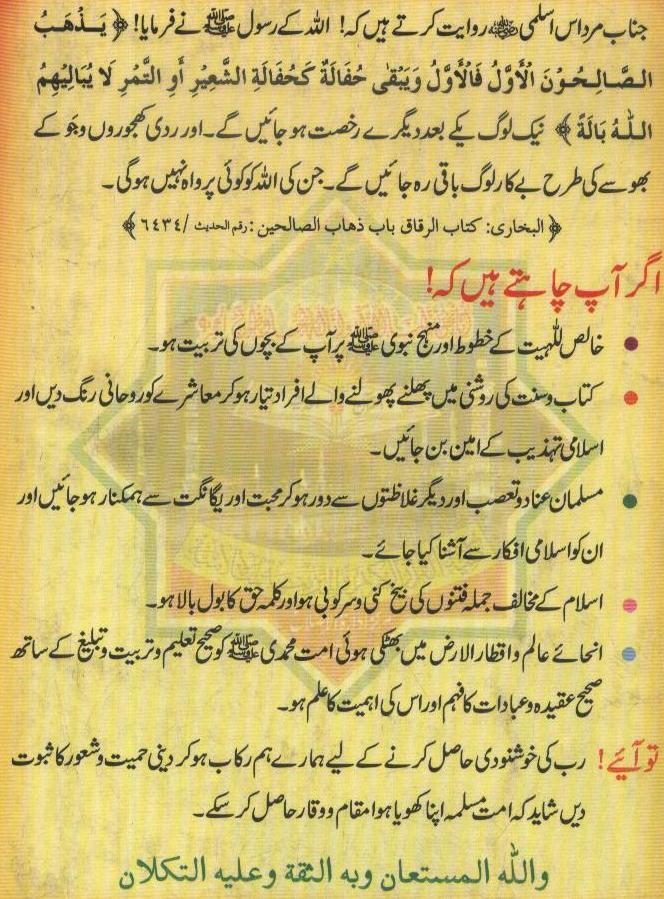 جناب مرداس اسلمی رضی اللہ عنہ روایت کرتے ہیں کہ! اللہ کے رسول ﷺ نے فرمایا! ﴿ يَـذْهَبُ
الصَّالِحُوْنَ الْأَوَّلُ فَالْأَوَّلُ وَيَبْقٰى حُفَالَةٌ كَحُفَالَةِ الشَّعِيْرِ أَوِ التَّمْرِ لَا يُبَالِيْهِمُ
اللّٰهُ بَالَةً ﴾ نیک لوگ یکے بعد دیگرے رخصت ہو جائیں گے۔ اور ردی کھجوروں و جَو کے
بھوسے کی طرح بے کار لوگ باقی رہ جائیں گے۔ جن کی اللہ کو کوئی پرواہ نہیں ہوگی۔
﴿ البخاری: کتاب الرقاق باب ذهاب الصالحین: رقم الحدیث /٦٤٣٤ ﴾
اگر آپ چاہتے ہیں کہ!
خالص للہیت کے خطوط اور منہج نبوی ﷺ پر آپ کے بچوں کی تربیت ہو۔
کتاب وسنت کی روشنی میں پھلنے پھولنے والے افراد تیار ہو کر معاشرے کو روحانی رنگ دیں اور
اسلامی تہذیب کے امین بن جائیں۔
مسلمان عناد و تعصب اور دیگر غلاظتوں سے دور ہو کر محبت اور یگانگت سے ہمکنار ہو جائیں اور
ان کو اسلامی افکار سے آشنا کیا جائے۔
اسلام کے مخالف جملہ فتنوں کی بیخ کنی و سرکوبی ہو اور کلمہ حق کا بول بالا ہو۔
انحائے عالم و اقطار الارض میں بھٹکی ہوئی امت محمدی ﷺ کو صحیح تعلیم و تربیت و تبلیغ کے ساتھ
صحیح عقیدہ و عبادات کا فہم اور اس کی اہمیت کا علم ہو۔
تو آیئے! رب کی خوشنودی حاصل کرنے کے لیے ہمارے ہم رکاب ہو کر دینی حمیت و شعور کا ثبوت
دیں شاید کہ امت مسلمہ اپنا کھویا ہوا مقام و وقار حاصل کر سکے۔
والله المستعان وبه الثقة وعليه التكلان